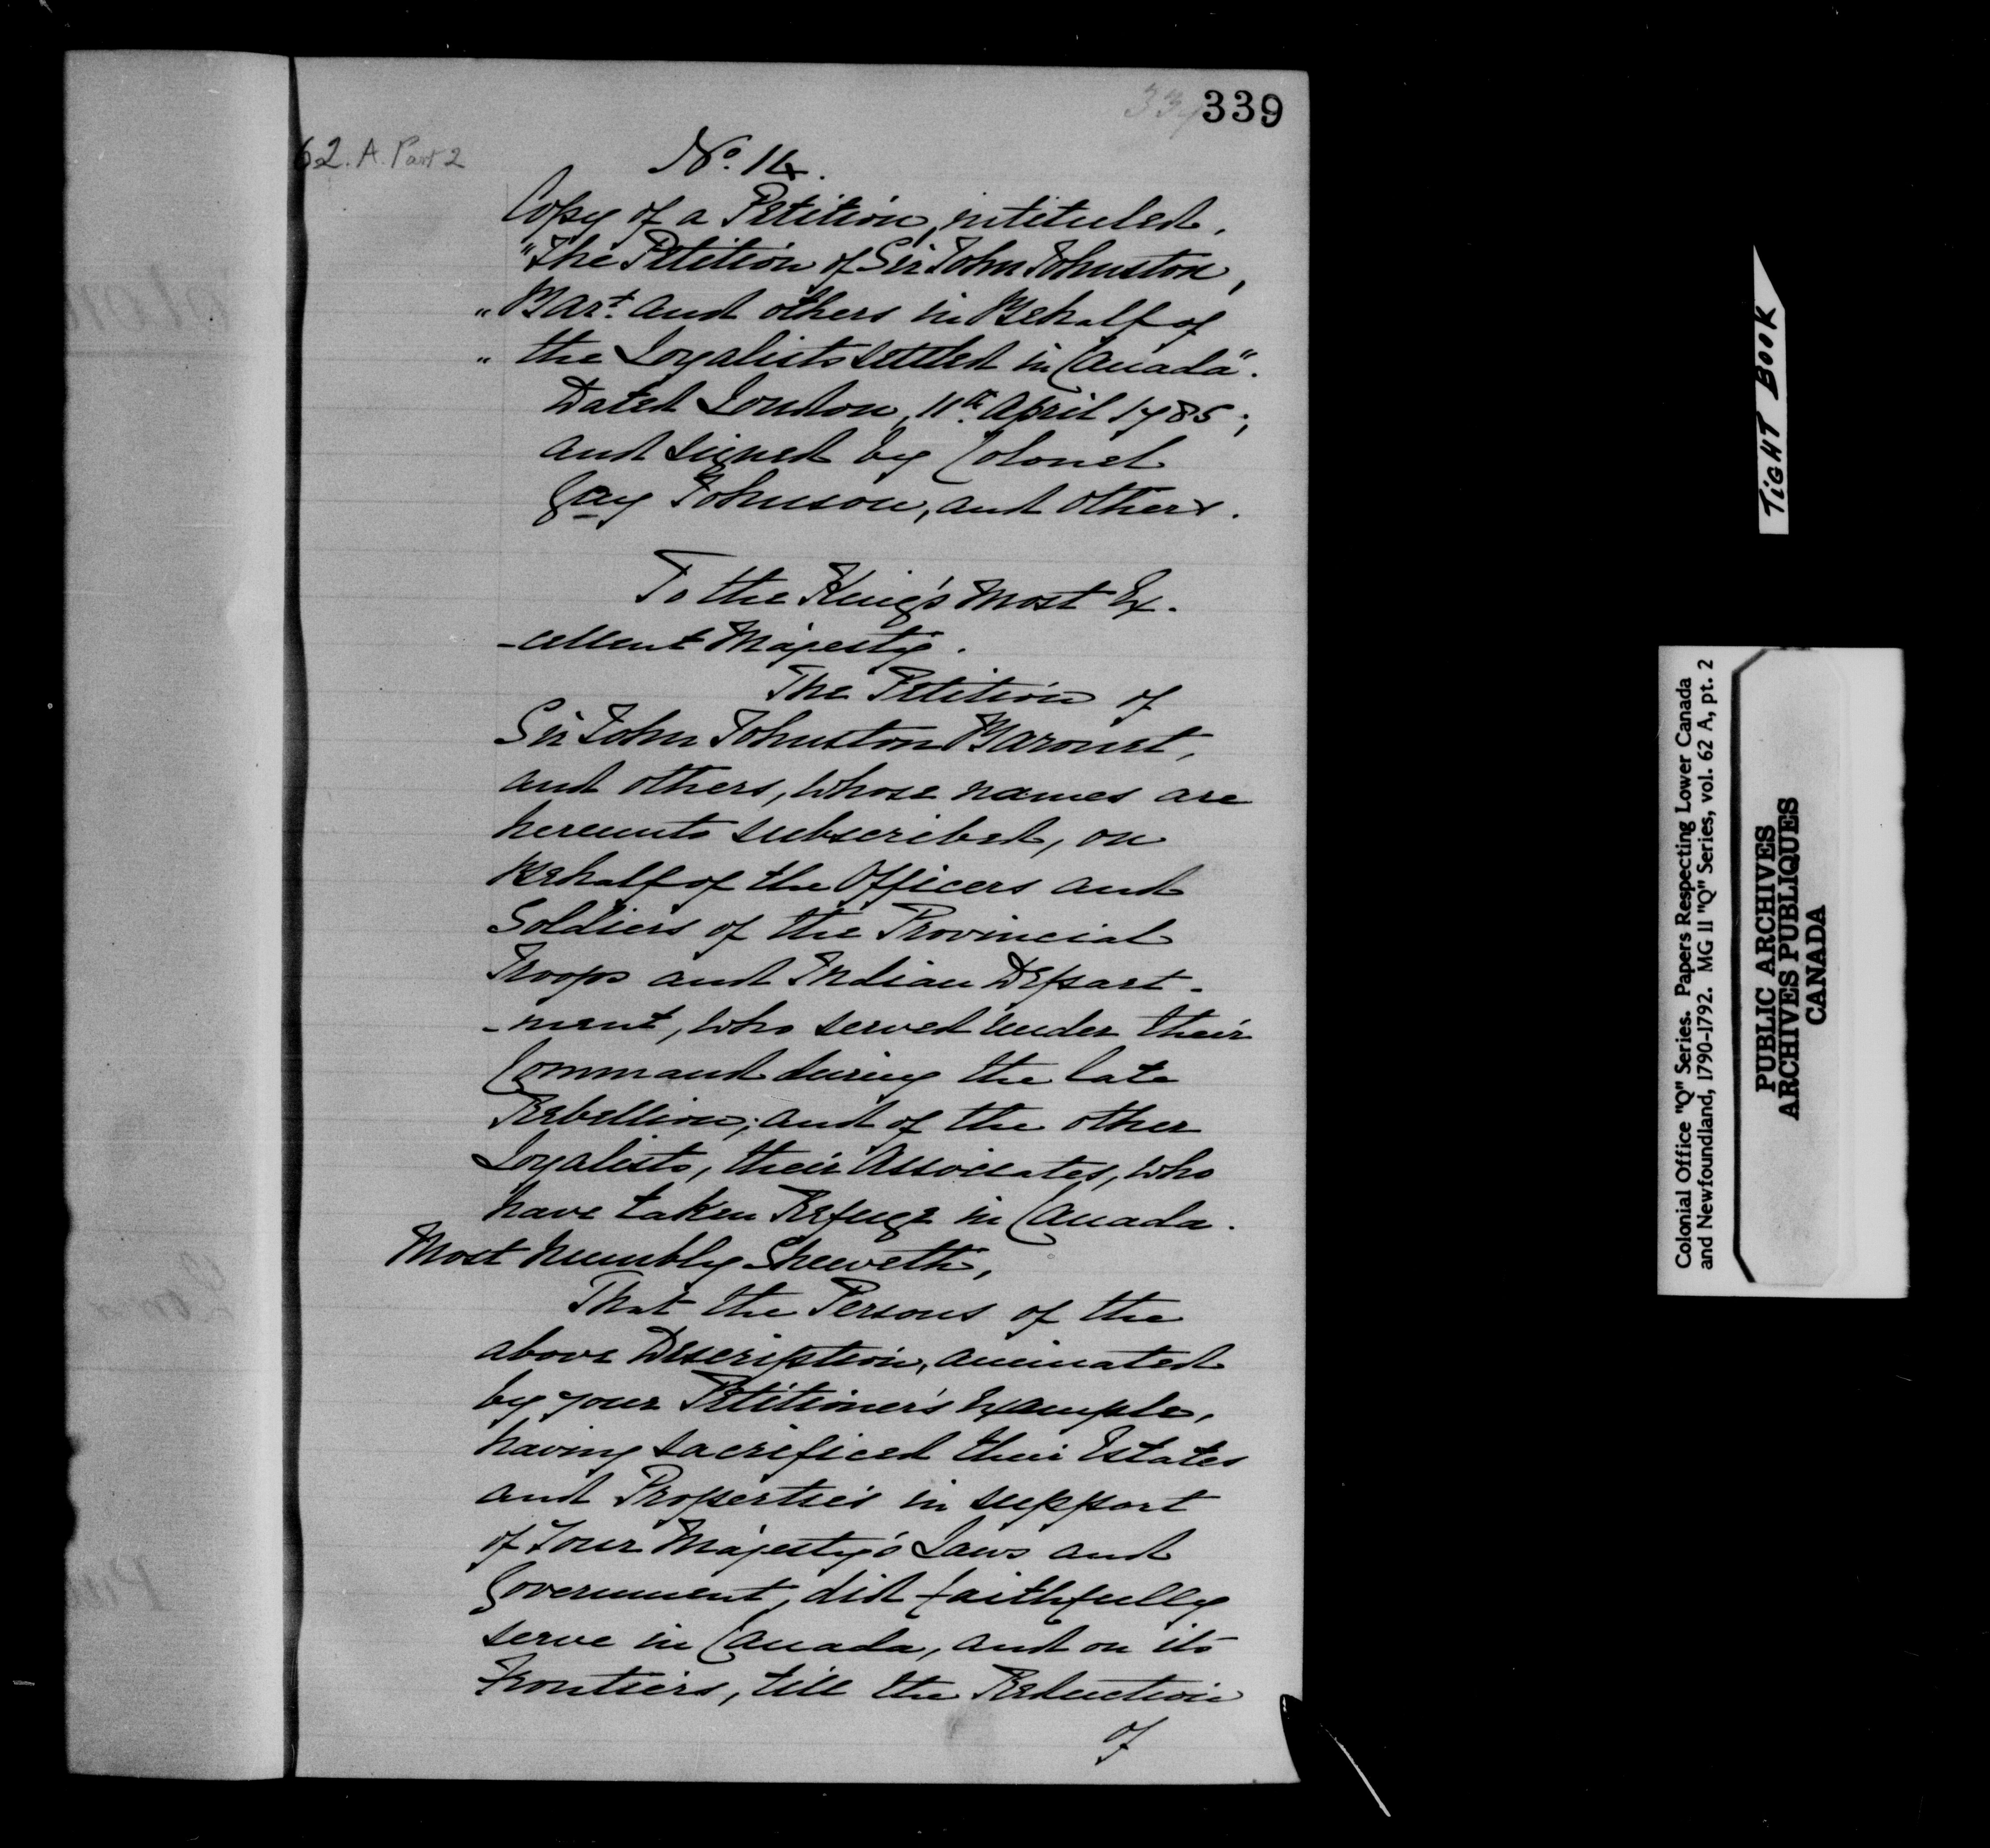 339
62. A. Part 2
No. 14.
Copy of a Petition, intituled,
"The Petition of Sir John Johnston,
"Bart. and others in Behalf of
"the Loyalists settled in Canada".
Dated London, 11th. April 1785;
and signed by Colonel
Gay Johnson, and others.
To the King's Most Ex-
-cellent Majesty.
The Petition of
Sir John Johnston Baronet,
and others, whose names are
hereunto subscribed, on
Behalf of the Officers and
Soldiers of the Provincial
Troops and Indian Depart-
-ment, who served under their
Command during the late
Rebellion; and of the other
Loyalists, their Associates, who
have taken Refuge in Canada.
Most humbly Sheweth,
That the Persons of the
above Description, animated
by your Petitioner's Example,
having sacrificed their Estates
and Properties in support
of Your Majesty's Laws and
Government, did faithfully
serve in Canada, and on its
Frontiers, till the Reduction
of
TIGHT BOOK
Colonial Office "Q" Series. Papers Respecting Lower Canada
and Newfoundland, 1790-1792. MG 11 "Q" Series, vol. 62 A, pt. 2
PUBLIC ARCHIVES
ARCHIVES PUBLIQUES
CANADA